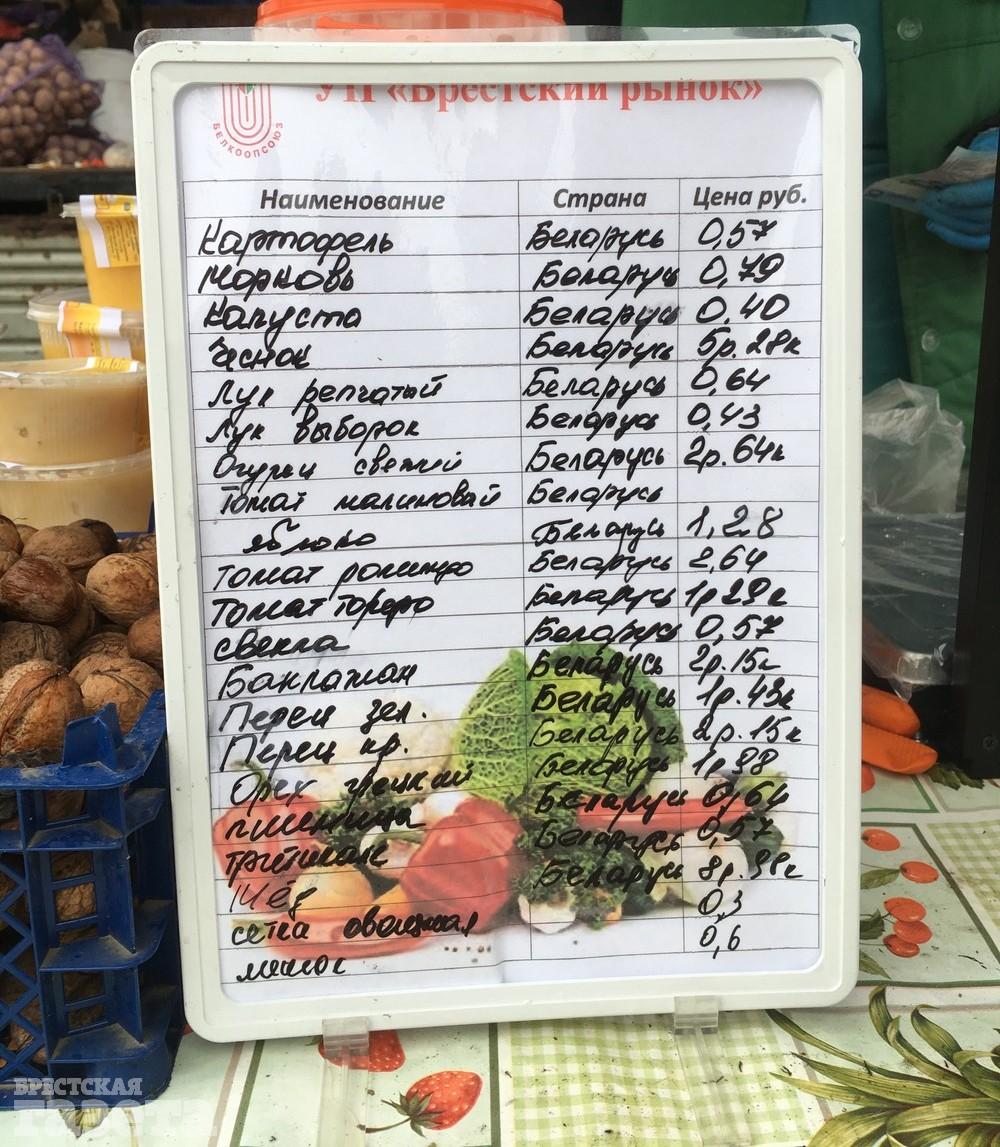 УП «Брестский рынок»
БЕЛКООПСОЮЗ
Наименование Страна Цена руб.
Картофель Беларусь 0,57
Морковь Беларусь 0,79
Капуста Беларусь 0,40
Чеснок Беларусь 5р.28к
Лук репчатый Беларусь 0,64
Лук выборок Беларусь 0,43
Огурец свежий Беларусь 2р.64к
Томат малиновый Беларусь
яблоко Беларусь 1,28
Томат Беларусь 2,64
Томат Тореро Беларусь 1р29к
свекла Беларусь 0,57
Баклажан Беларусь 2р.15к
Перец зел. Беларусь 1р.43к
Перец кр. Беларусь 2р.15к
Орех грецкий Беларусь 1р98
пшеница Беларусь 0,64
тритикале Беларусь 0,57
Мёд Беларусь 8р.98к
сетка овощная 0,3
мешок 0,6
БРЕСТСКАЯ
газета